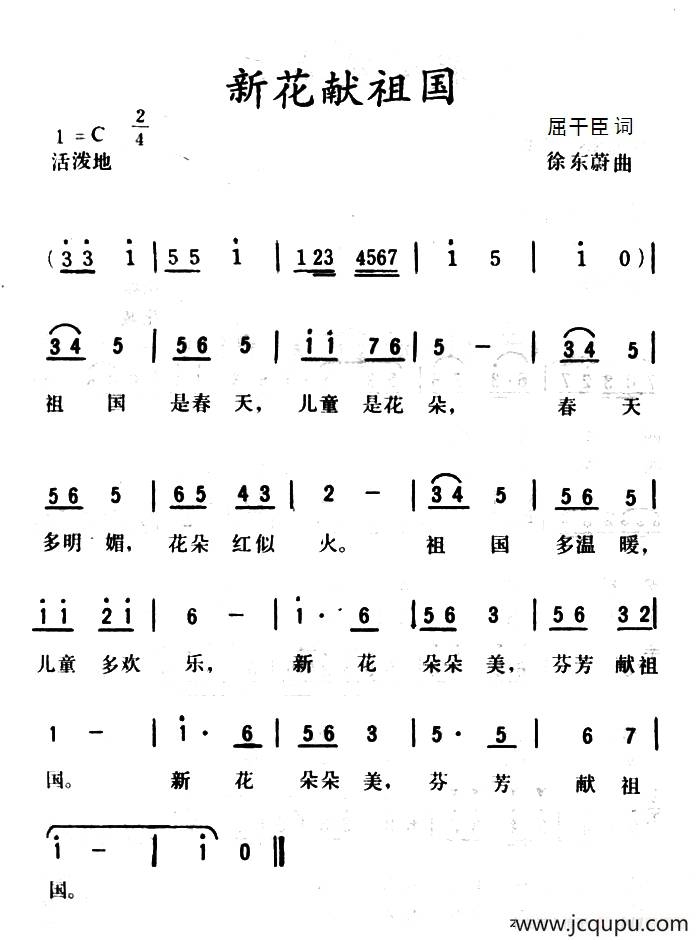 新花献祖国
1 = C 2/4
屈干臣 词
活泼地
徐东蔚 曲
( 3̇ 3̇ 1̇ | 5 5 1̇ | 1 2 3 4 5 6 7 | 1̇ 5 | 1̇ 0 ) |
3 4 5 | 5 6 5 | 1̇ 1̇ 7 6 | 5 - | 3 4 5 |
祖 国 是春 天， 儿童 是花 朵， 春 天
5 6 5 | 6 5 4 3 | 2 - | 3 4 5 | 5 6 5 |
多明 媚， 花朵 红似 火。 祖 国 多温 暖，
1̇ 1̇ 2̇ 1̇ | 6 - | 1̇ · 6 | 5 6 3 | 5 6 3 2 |
儿童 多欢 乐， 新 花 朵朵 美， 芬芳 献祖
1 - | 1̇ · 6 | 5 6 3 | 5 · 5 | 6 7 |
国。 新 花 朵朵 美， 芬 芳 献 祖
1̇ - | 1̇ 0 ‖
国。
www.jcqupu.com